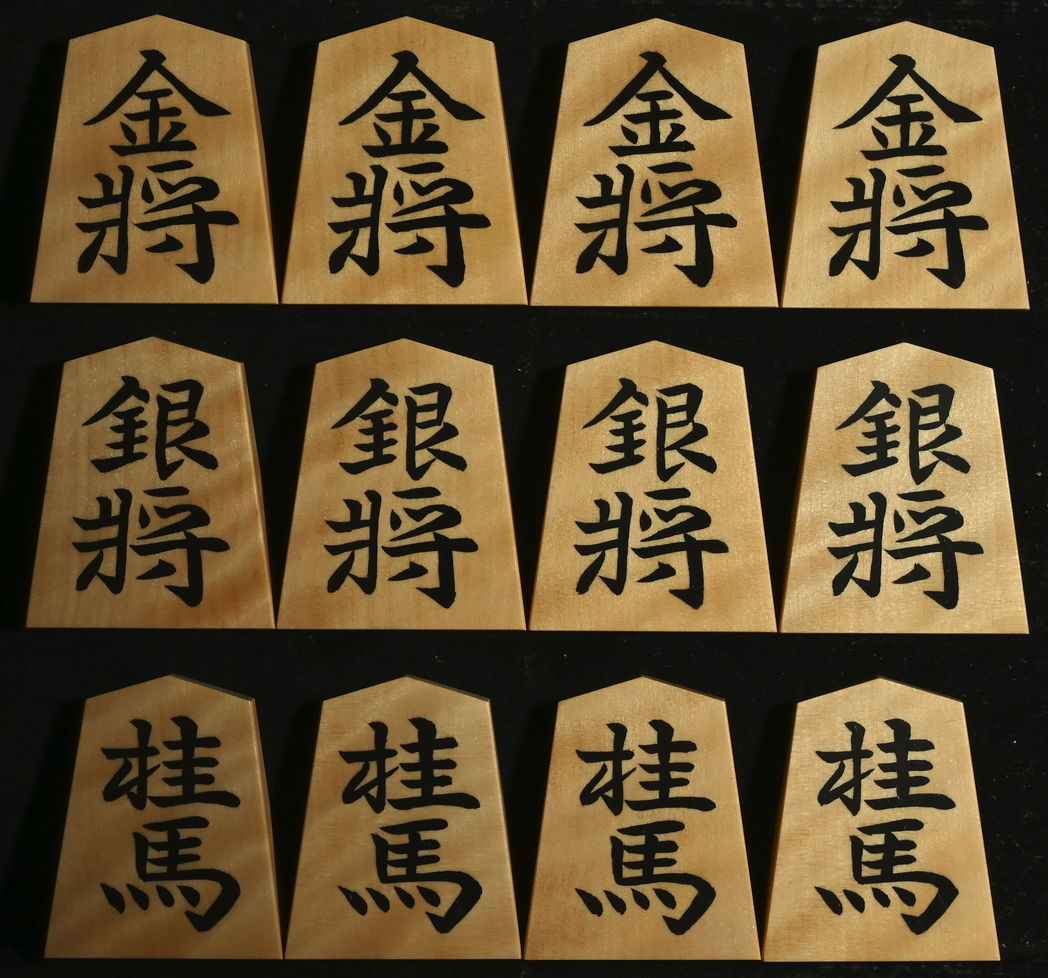 金將 金將 金將 金將
銀將 銀將 銀將 銀將
桂馬 桂馬 桂馬 桂馬